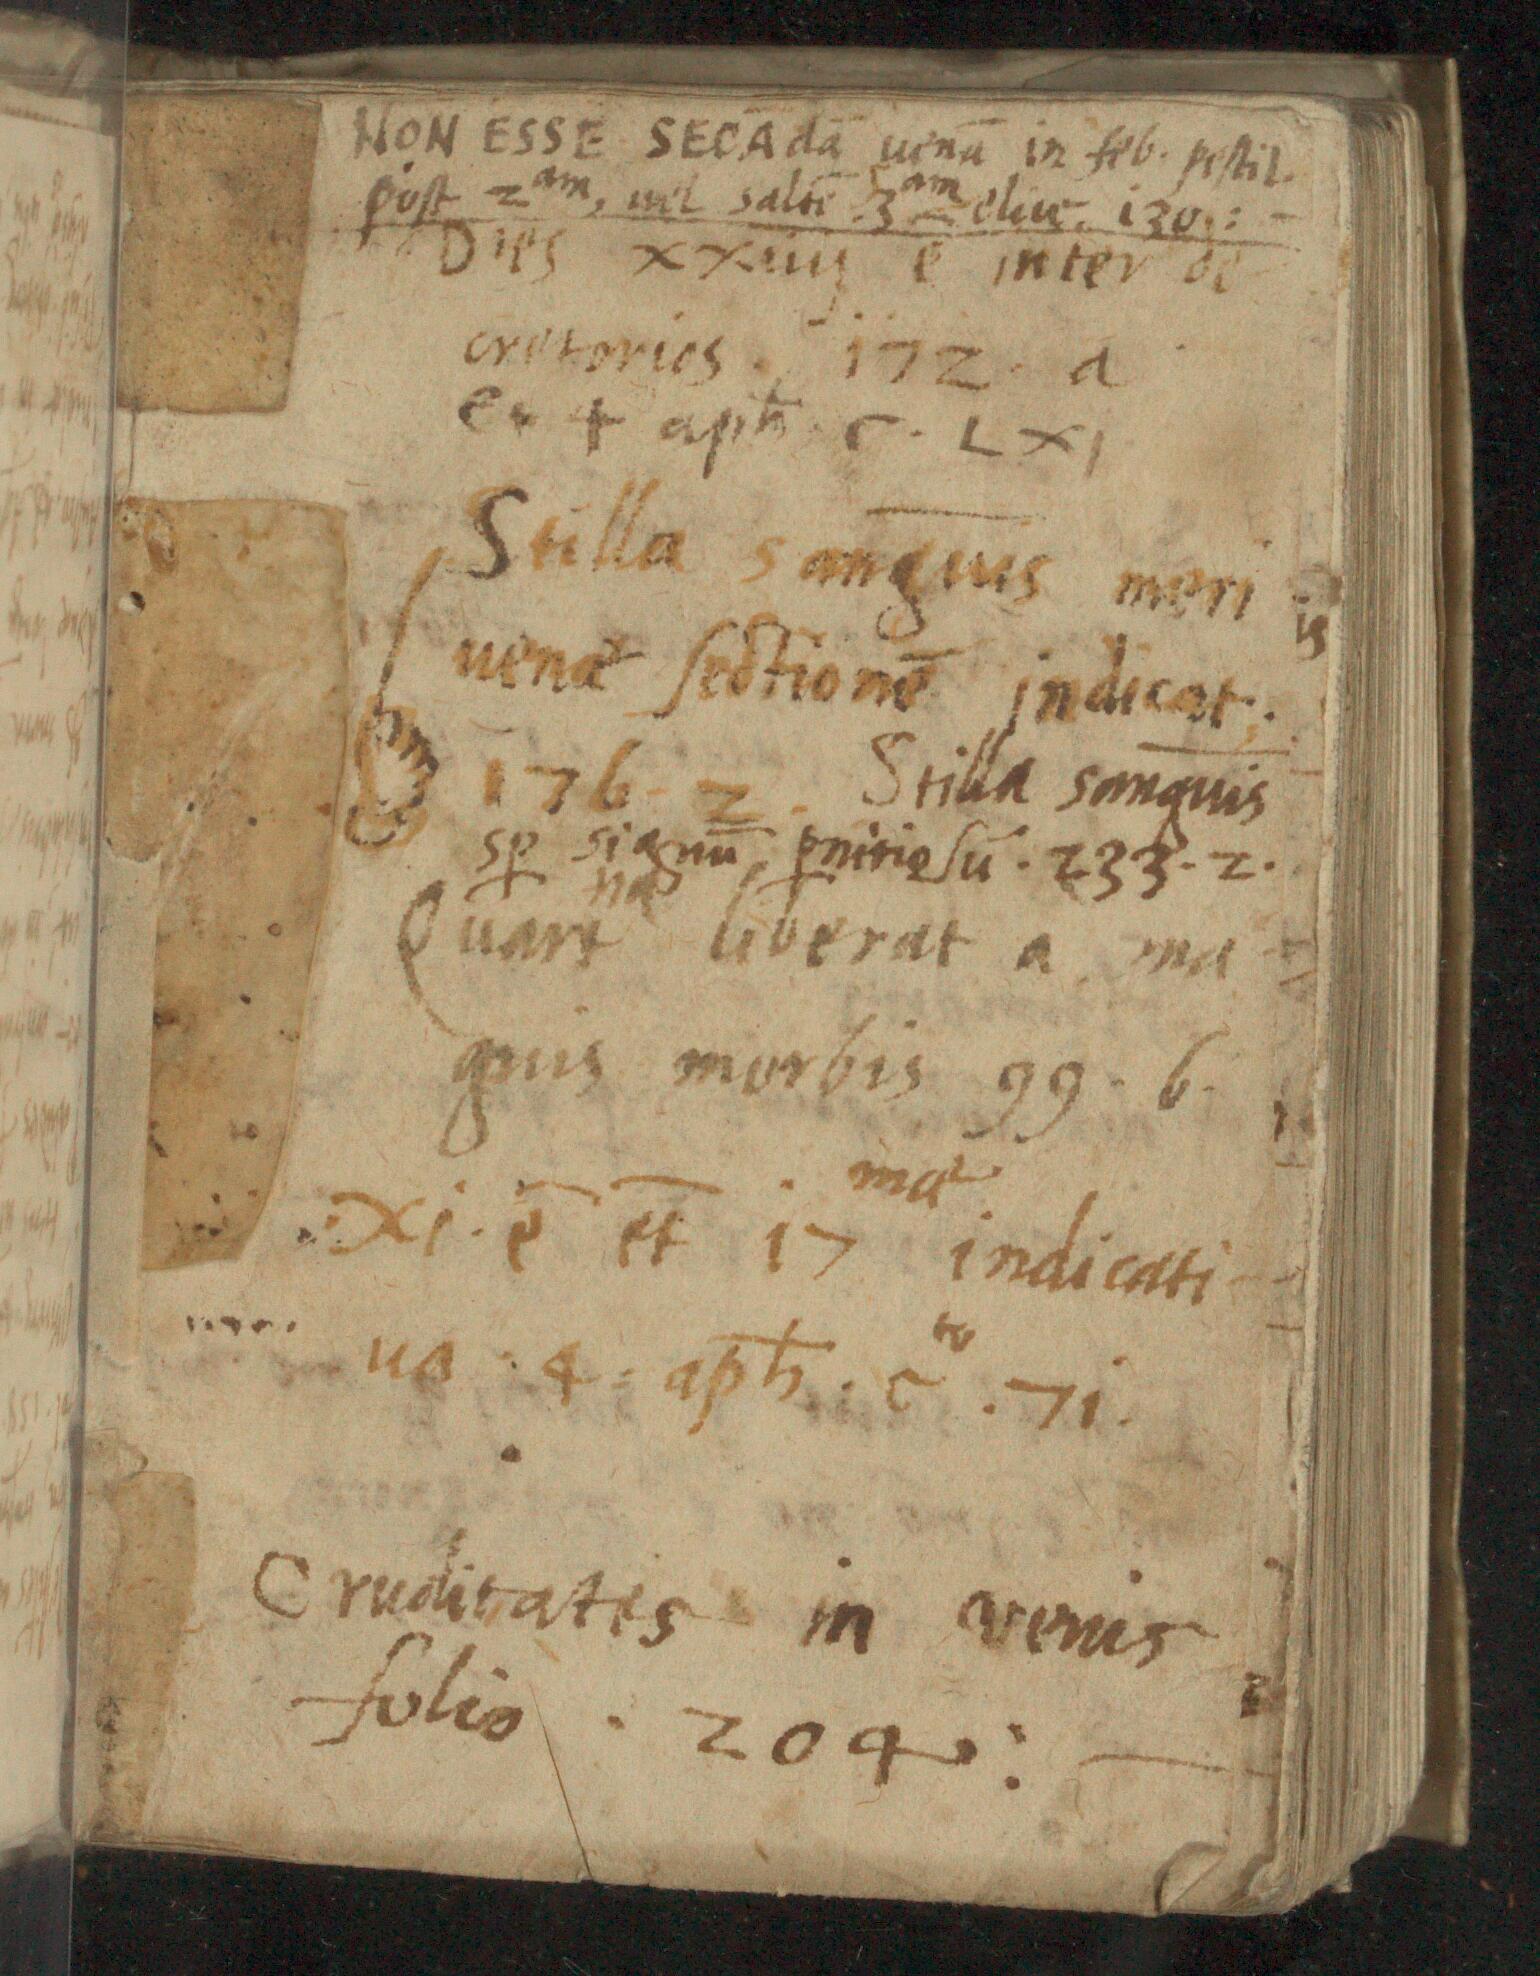 NON ESSE SECAdā uenā in feb. pestil.
post 2am, uel saltē 3am eluc. 130:-
Dies xxiiij ē inter de
cretorios. 172. a
ex 4 aph. c. LXI
Stilla sanguis meri
uenæ sectionē indicat.
176. 2. Stilla sanguis
sp signū pnitiosū. 233. 2.
Quartna liberat a ma
gnis morbis 99. 6.
XI. ē et 17 ma indicati
ua. 4. aph. cto. 71.
Cruditates in venis
folio. 204: